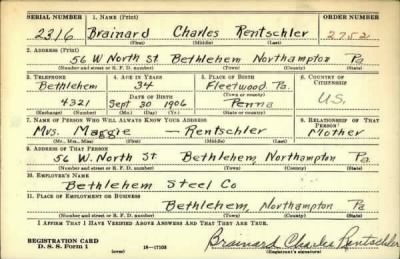 SERIAL NUMBER 1. NAME (Print) ORDER NUMBER
2316 Brainard Charles Rentschler 2752
(First) (Middle) (Last)
2. ADDRESS (Print)
56 W North St. Bethlehem Northampton Pa
(Number and street or R. F. D. number) (Town) (County) (State)
3. TELEPHONE 4. AGE IN YEARS 5. PLACE OF BIRTH 6. COUNTRY OF CITIZENSHIP
Bethlehem 34 Fleetwood Pa.
DATE OF BIRTH (Town or county)
4321 Sept 30 1906 Penna U.S.
(Exchange) (Number) (Mo.) (Day) (Yr.) (State or country)
7. NAME OF PERSON WHO WILL ALWAYS KNOW YOUR ADDRESS 8. RELATIONSHIP OF THAT PERSON
Mrs. Maggie — Rentschler Mother
(Mr., Mrs., Miss) (First) (Middle) (Last)
9. ADDRESS OF THAT PERSON
56 W. North St Bethlehem, Northampton Pa.
(Number and street or R. F. D. number) (Town) (County) (State)
10. EMPLOYER'S NAME
Bethlehem Steel Co
11. PLACE OF EMPLOYMENT OR BUSINESS
Bethlehem, Northampton Pa
(Number and street or R. F. D. number) (Town) (County) (State)
I AFFIRM THAT I HAVE VERIFIED ABOVE ANSWERS AND THAT THEY ARE TRUE.
REGISTRATION CARD
D. S. S. Form 1 (over) 16—17105 Brainard Charles Rentschler
(Registrant's signature)